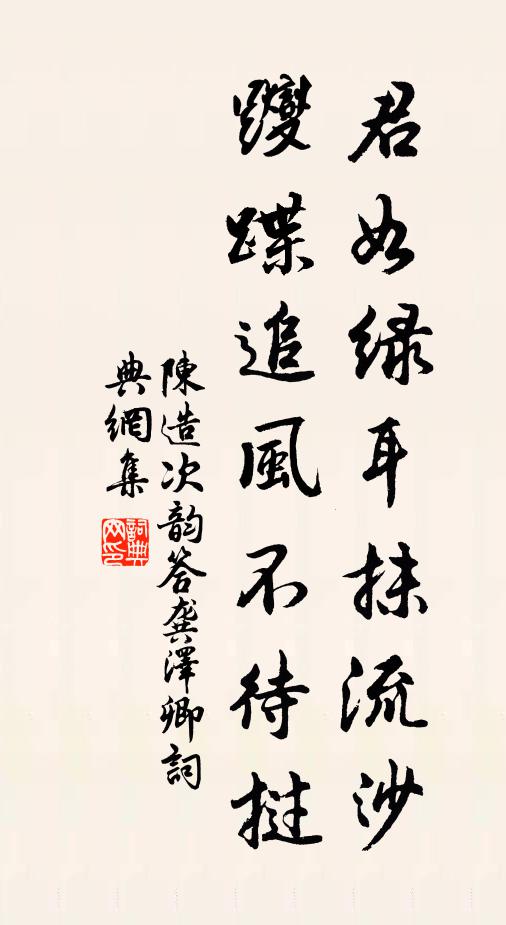 君如绿耳抹流沙
躞蹀追風不待撻
陳造次韵答龔澤卿詞
典網集
詞典網印